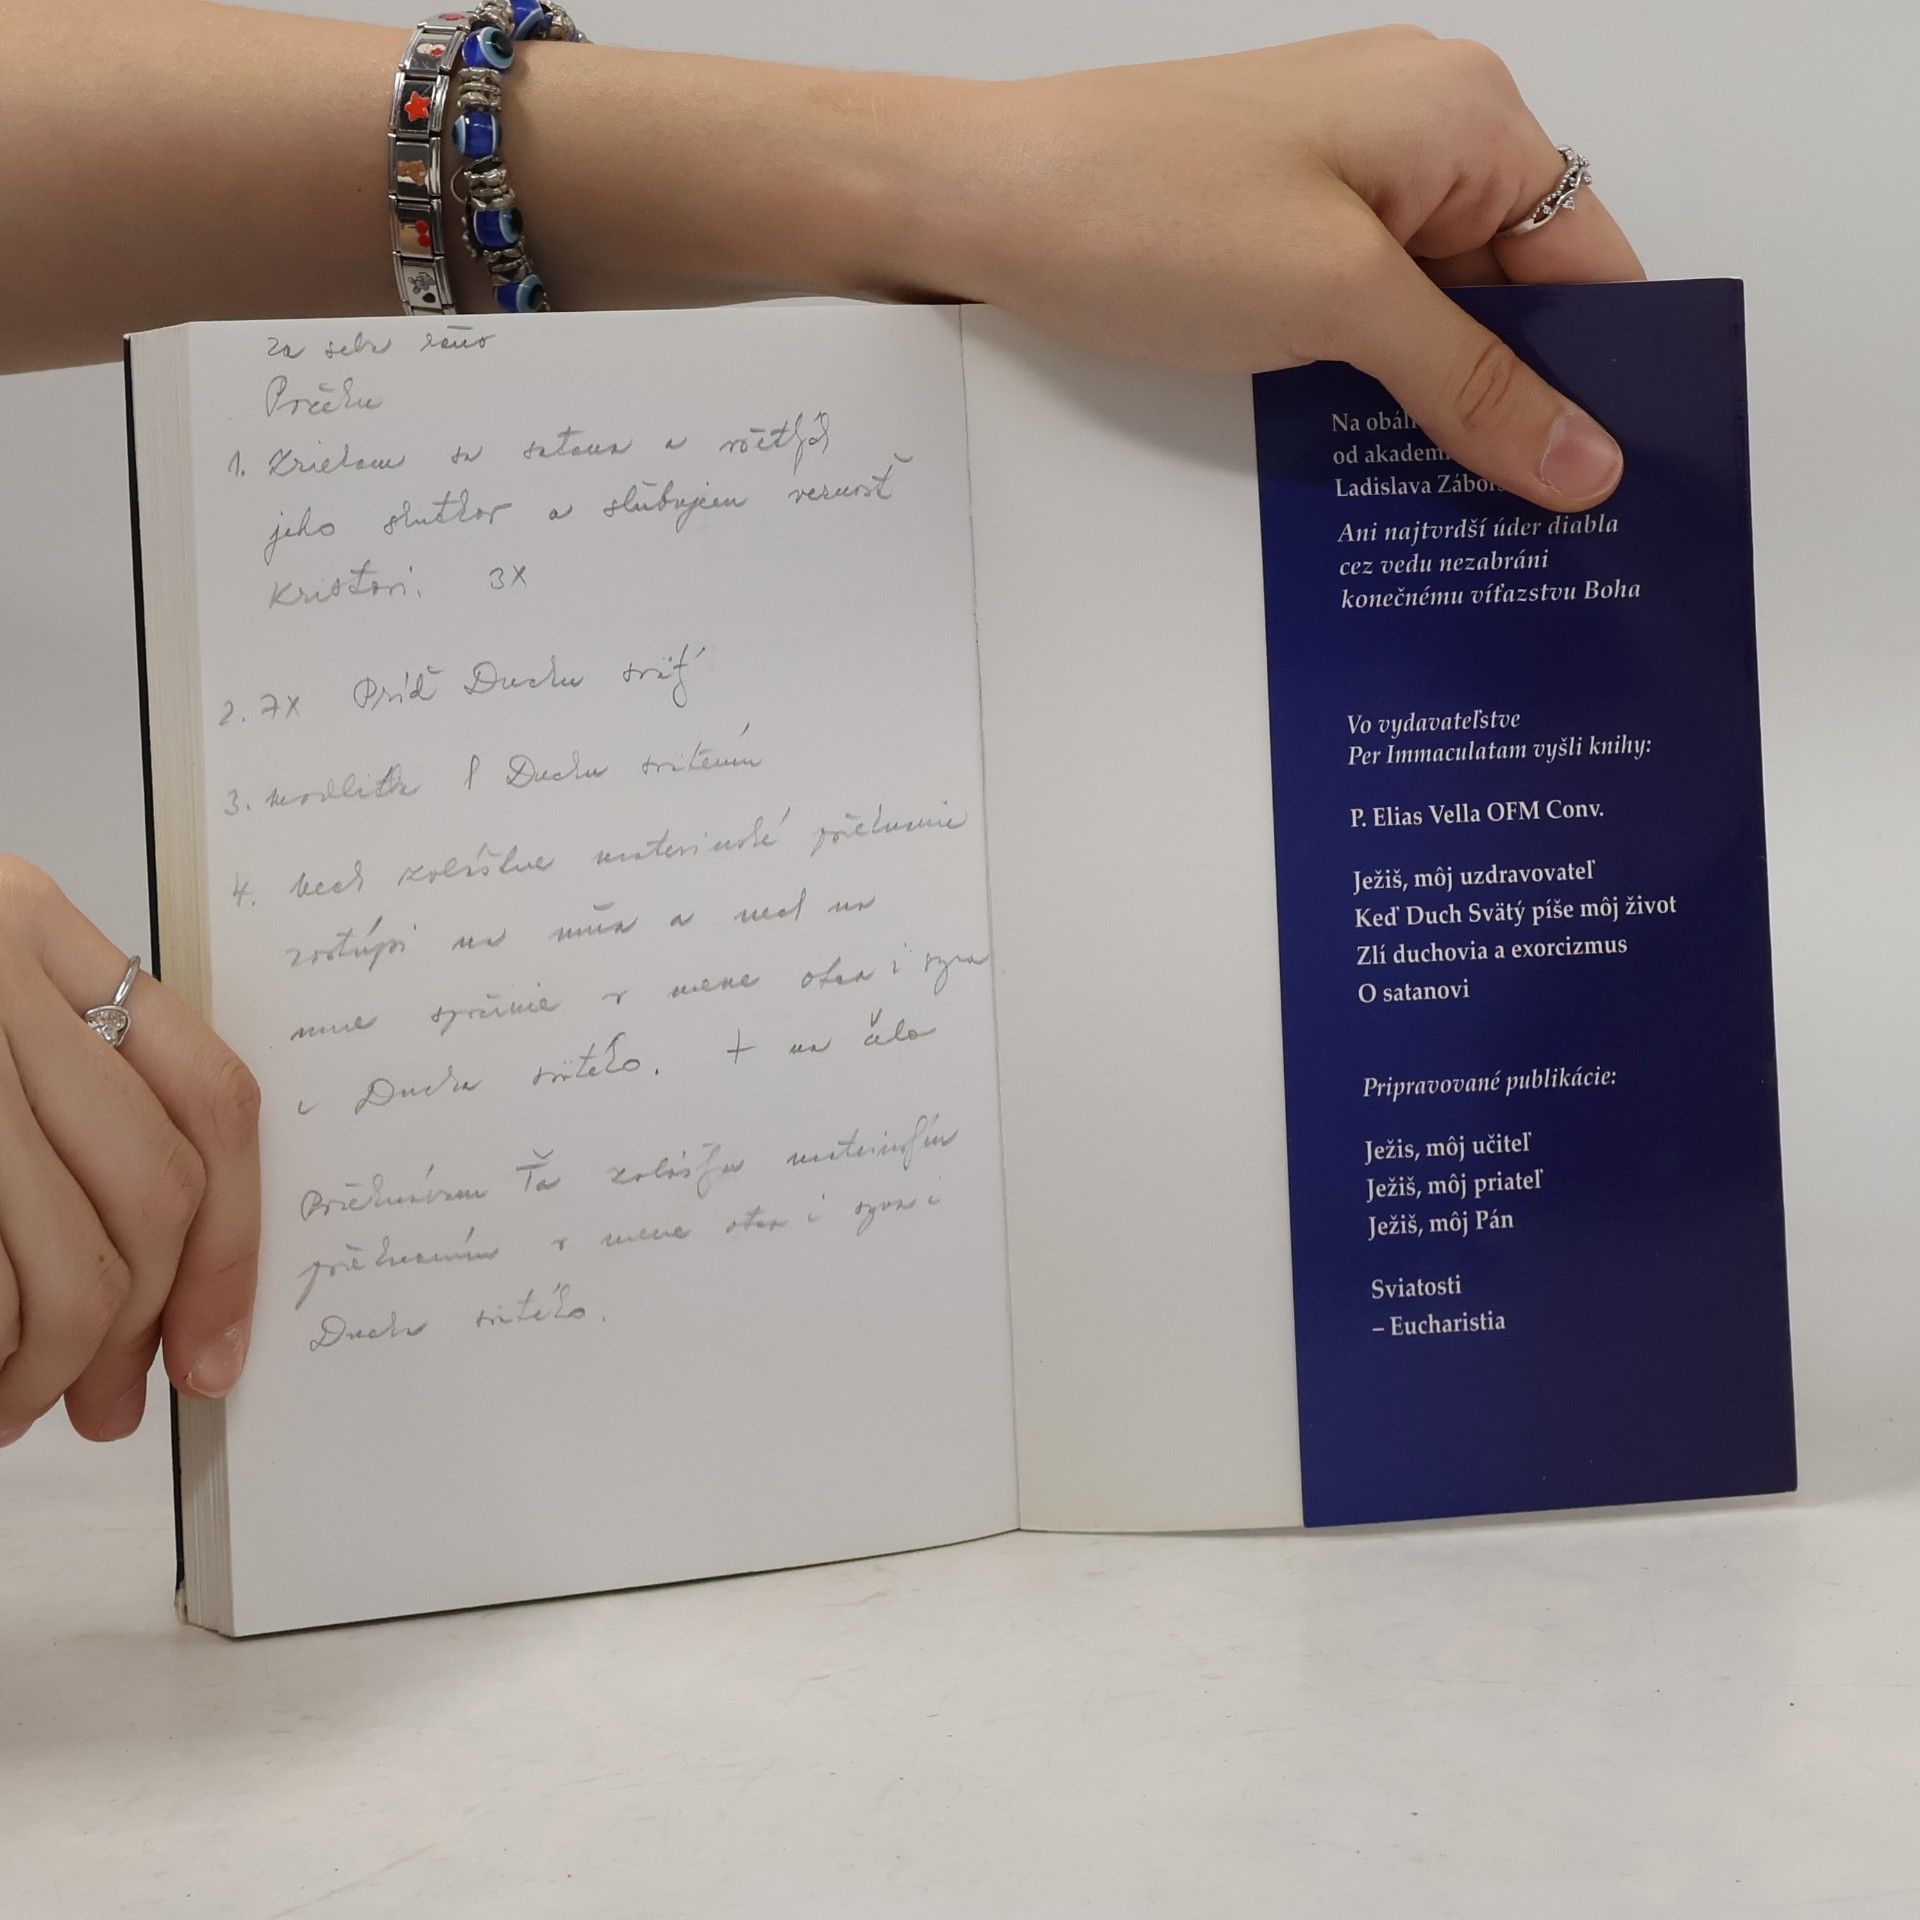 za seba ráno
1. Zriekam sa satana a všetkých
jeho skutkov a sľubujem vernosť
Kristovi. 3X
2. 7X Príď Duchu svätý
3. modlitba k Duchu svätému
4. nech zvláštne materinské požehnanie
zostúpi na mňa a nech na
mne spočinie v mene otca i syna
i Ducha svätého. + na čelo
Požehnávam Ťa zvláštnym materinským
požehnaním v mene otca i syna i
Ducha svätého.
Na obál
od akadem
Ladislava Zábor
Ani najtvrdší úder diabla
cez vedu nezabráni
konečnému víťazstvu Boha
Vo vydavateľstve
Per Immaculatam vyšli knihy:
P. Elias Vella OFM Conv.
Ježiš, môj uzdravovateľ
Keď Duch Svätý píše môj život
Zlí duchovia a exorcizmus
O satanovi
Pripravované publikácie:
Ježis, môj učiteľ
Ježiš, môj priateľ
Ježiš, môj Pán
Sviatosti
– Eucharistia